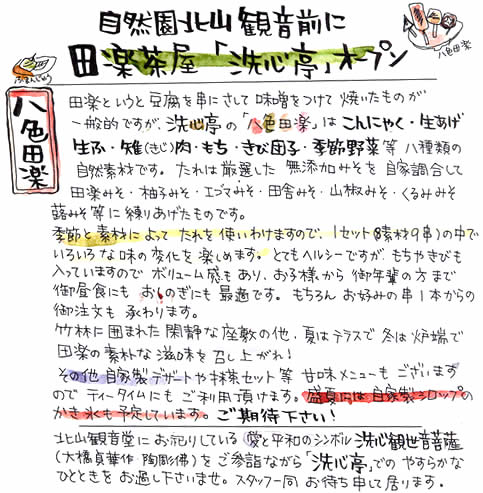 自然園北山観音前に
田楽茶屋「洗心亭」オープン
八色田楽
ふまんじゅう
八色田楽
田楽というと豆腐を串にさして味噌をつけて焼いたものが
一般的ですが、洗心亭の「八色田楽」はこんにゃく・生あげ
生ふ・雉(きじ)肉・もち・きび団子・季節野菜等 八種類の
自然素材です。たれは厳選した無添加みそを自家調合して
田楽みそ・柚子みそ・エゴマみそ・田舎みそ・山椒みそ・くるみみそ
蕗みそ等に練りあげたものです。
季節と素材によってたれを使いわけますので、1セット(8素材9串)の中で
いろいろな味の変化を楽しめます。とてもヘルシーですが、もちやきびも
入っていますのでボリューム感もあり、お子様から御年輩の方まで
御昼食にも おしのぎにも 最適です。もちろん お好みの串1本からの
御注文も 承わります。
竹林に囲まれた閑静な座敷の他、夏はテラスで 冬は炉端で
田楽の素朴な滋味を召し上がれ!
その他自家製デザートや抹茶セット等 甘味メニューもございます
ので ティータイムにもご利用頂けます。盛夏には自家製シロップの
かき氷も予定しています。ご期待下さい!
北山観音堂にお祀りしている愛と平和のシンボル 洗心観世音菩薩
(大橋貞華作・陶彫佛)をご参詣ながら「洗心亭」でのやすらかな
ひとときをお過し下さいませ。スタッフ一同 お待ち申して居ります。